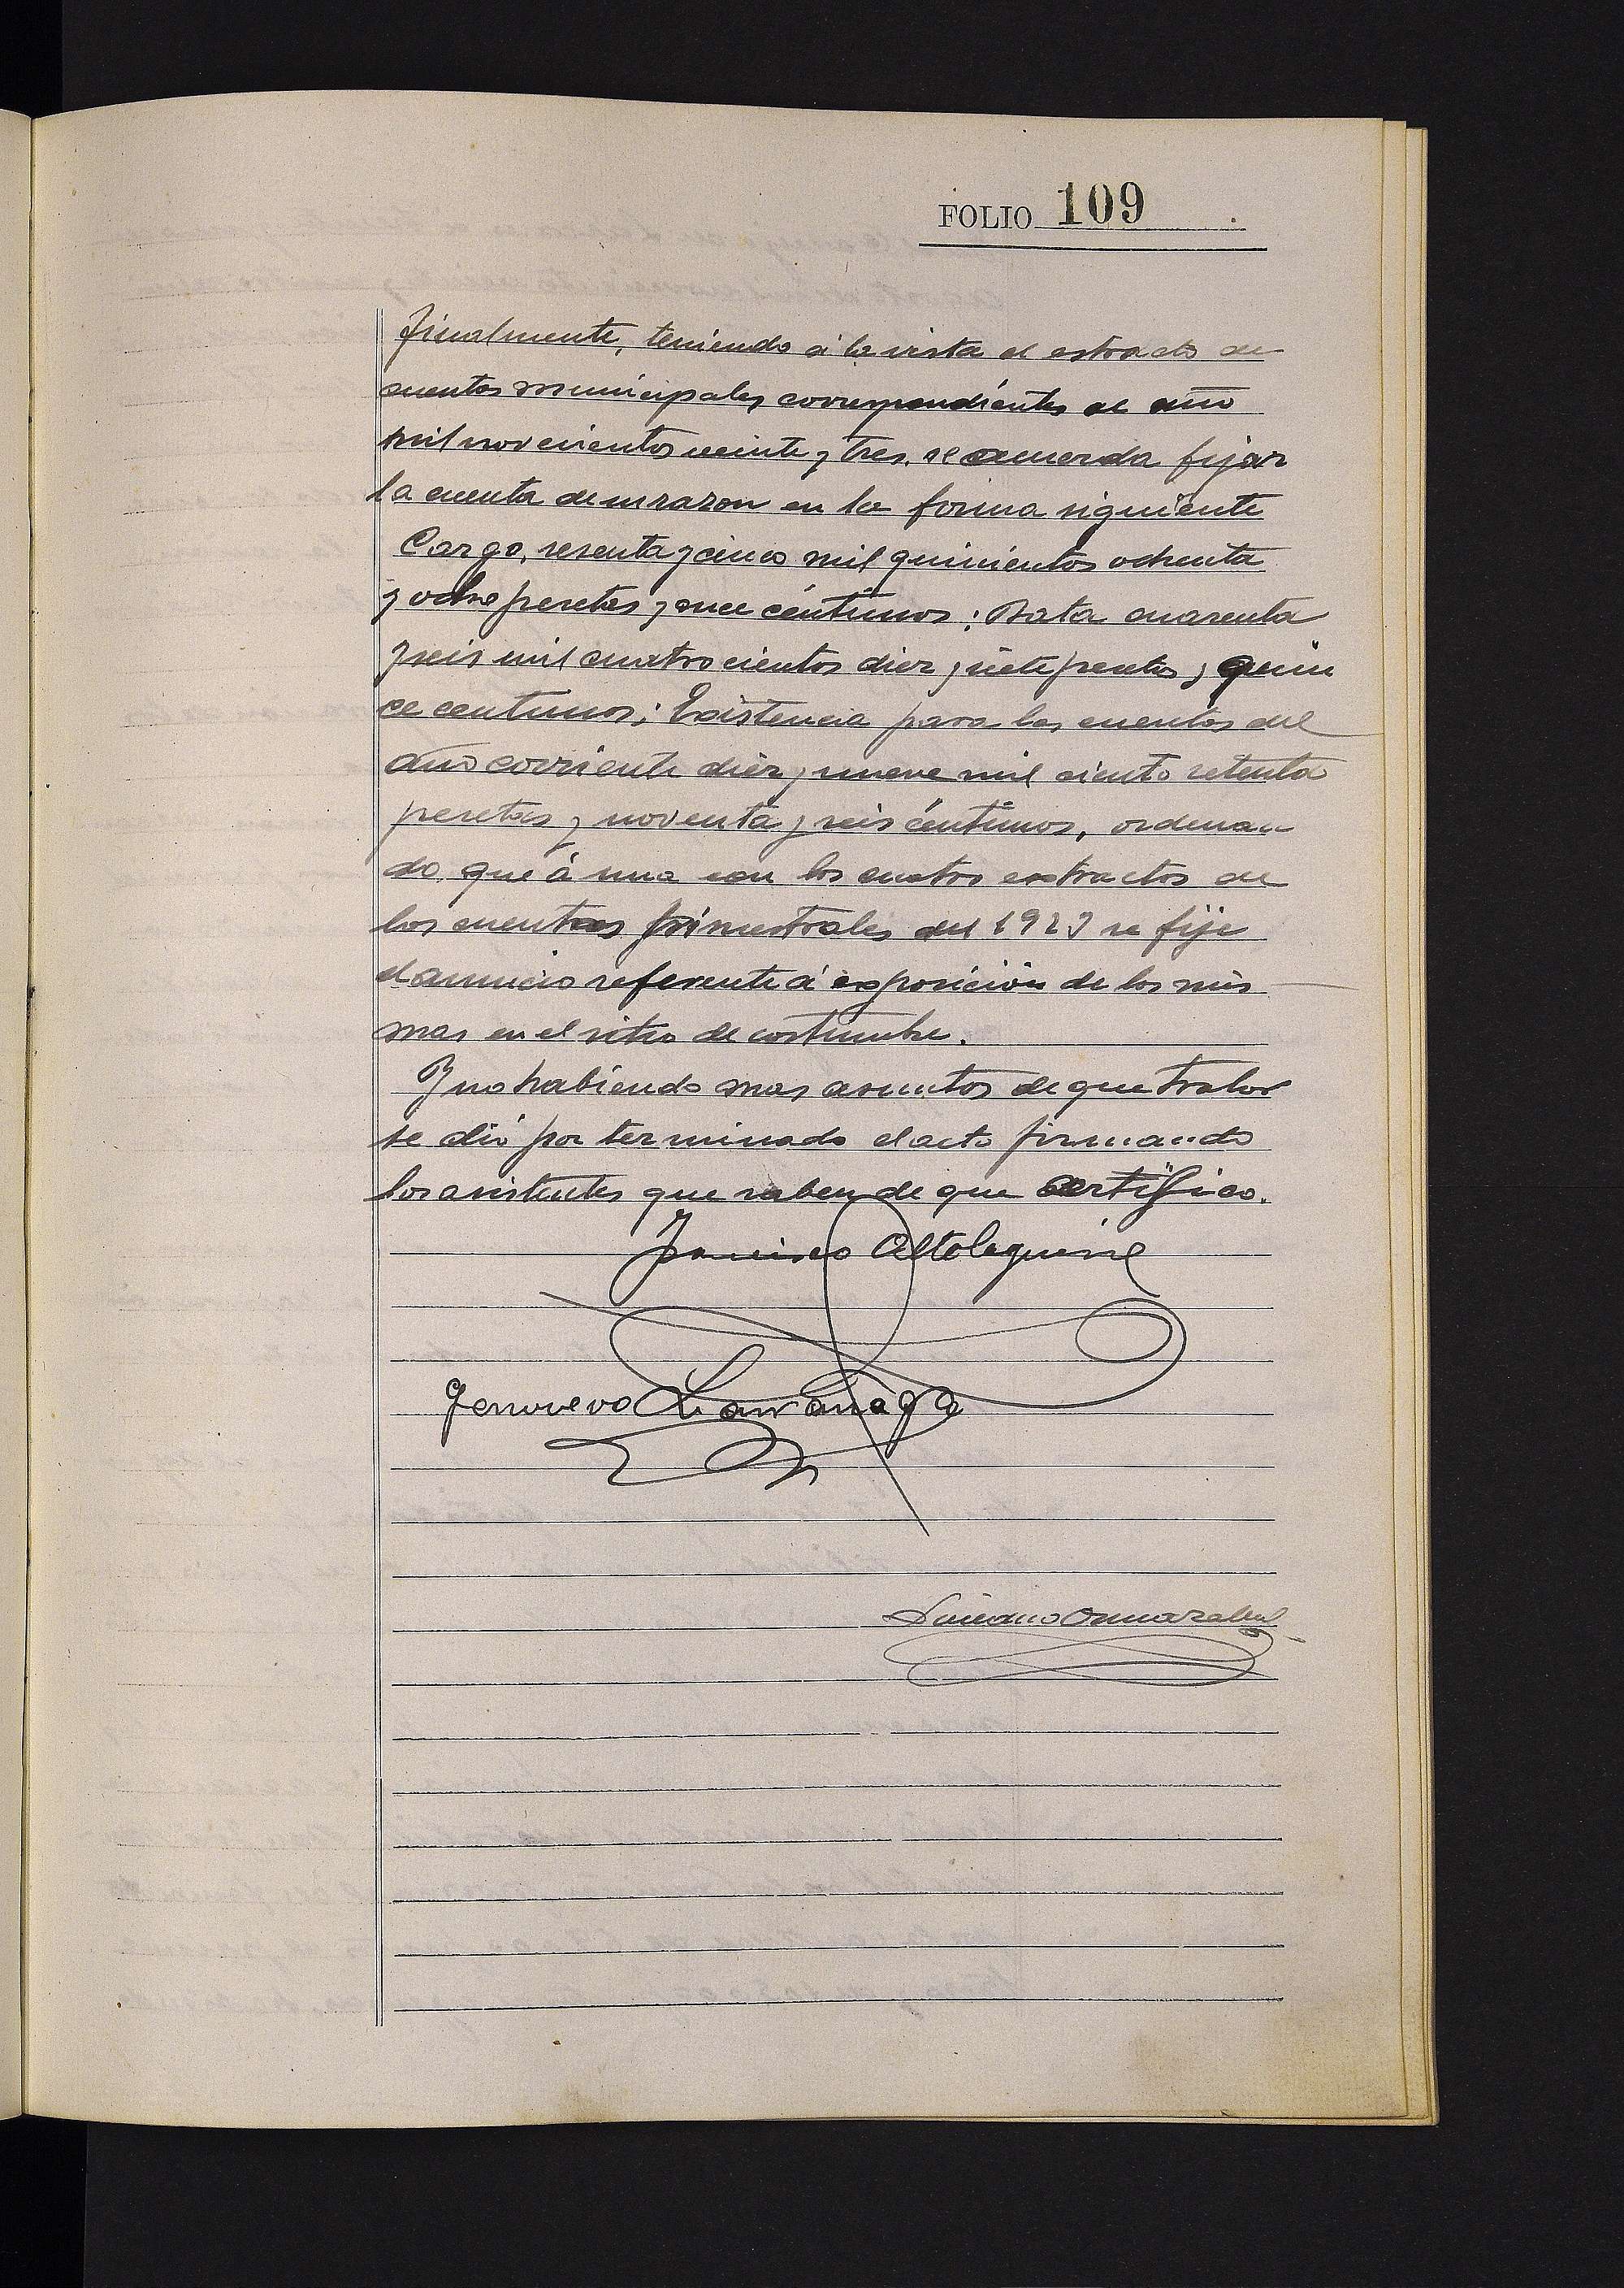 FOLIO 109
Finalmente, teniendo á la vista el estracto de
cuentas municipales correspondientes al año
mil novecientos veinte y tres, se acuerda fijar
la cuenta de su razon en la forma siguiente
Cargo, sesenta y cinco mil quinientos ochenta
y ocho pesetas y once céntimos; Data cuarenta
y seis mil cuatrocientos diez y siete pesetas y quin
ce centimos; Existencia para las cuentas del
año corriente diez y nueve mil ciento setenta
pesetas y noventa y seis céntimos, ordenan
do que á una con los cuatro extractos de
las cuentas trimestrales del 1923 se fije
el anuncio referente á exposición de las mis
mas en el sitio de costumbre.
Y no habiendo mas asuntos de que tratar
se dió por terminado el acto firmando
los asistentes que saben de que certifico.
Francisco Altolaguirre
Genoveva Larrañaga
Luciano